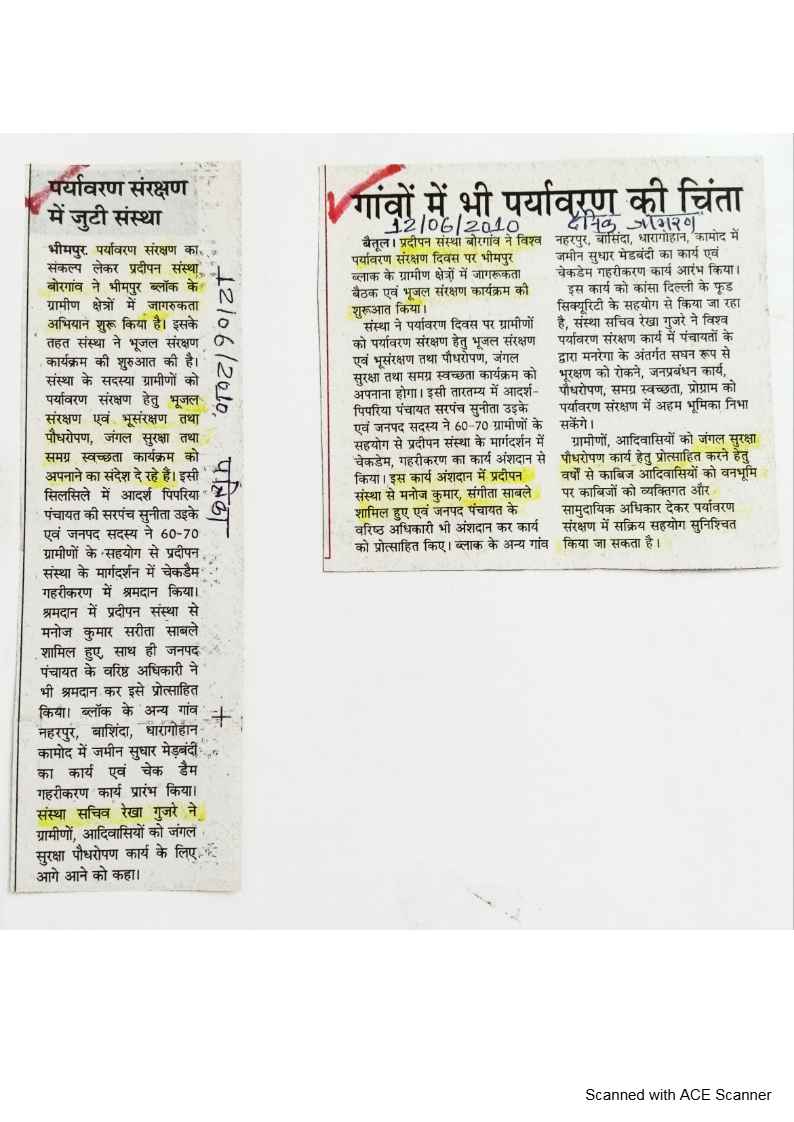 पर्यावरण संरक्षण
में जुटी संस्था
भीमपुर. पर्यावरण संरक्षण का
संकल्प लेकर प्रदीपन संस्था
बोरगांव ने भीमपुर ब्लॉक के
ग्रामीण क्षेत्रों में जागरुकता
अभियान शुरू किया है। इसके
तहत संस्था ने भूजल संरक्षण
कार्यक्रम की शुरुआत की है।
संस्था के सदस्या ग्रामीणों को
पर्यावरण संरक्षण हेतु भूजल
संरक्षण एवं भूसंरक्षण तथा
पौधरोपण, जंगल सुरक्षा तथा
समग्र स्वच्छता कार्यक्रम को
अपनाने का संदेश दे रहे हैं। इसी
सिलसिले में आदर्श पिपरिया
पंचायत की सरपंच सुनीता उइके
एवं जनपद सदस्य ने 60-70
ग्रामीणों के सहयोग से प्रदीपन
संस्था के मार्गदर्शन में चेकडैम
गहरीकरण में श्रमदान किया।
श्रमदान में प्रदीपन संस्था से
मनोज कुमार सरीता साबले
शामिल हुए, साथ ही जनपद
पंचायत के वरिष्ठ अधिकारी ने
भी श्रमदान कर इसे प्रोत्साहित
किया। ब्लॉक के अन्य गांव
नहरपुर, बाशिंदा, धारागोहान
कामोद में जमीन सुधार मेड़बंदी
का कार्य एवं चेक डैम
गहरीकरण कार्य प्रारंभ किया।
संस्था सचिव रेखा गुजरे ने
ग्रामीणों, आदिवासियों को जंगल
सुरक्षा पौधरोपण कार्य के लिए
आगे आने को कहा।
12/06/2010, पत्रिका
गांवों में भी पर्यावरण की चिंता
12/06/2010 दैनिक जागरण
बैतूल। प्रदीपन संस्था बोरगांव ने विश्व
पर्यावरण संरक्षण दिवस पर भीमपुर
ब्लाक के ग्रामीण क्षेत्रों में जागरूकता
बैठक एवं भूजल संरक्षण कार्यक्रम की
शुरूआत किया।
संस्था ने पर्यावरण दिवस पर ग्रामीणों
को पर्यावरण संरक्षण हेतु भूजल संरक्षण
एवं भूसंरक्षण तथा पौधरोपण, जंगल
सुरक्षा तथा समग्र स्वच्छता कार्यक्रम को
अपनाना होगा। इसी तारतम्य में आदर्श-
पिपरिया पंचायत सरपंच सुनीता उइके
एवं जनपद सदस्य ने 60-70 ग्रामीणों के
सहयोग से प्रदीपन संस्था के मार्गदर्शन में
चेकडेम, गहरीकरण का कार्य अंशदान से
किया। इस कार्य अंशदान में प्रदीपन
संस्था से मनोज कुमार, संगीता साबले
शामिल हुए एवं जनपद पंचायत के
वरिष्ठ अधिकारी भी अंशदान कर कार्य
को प्रोत्साहित किए। ब्लाक के अन्य गांव
नहरपुर, बासिंदा, धारागोहान, कामोद में
जमीन सुधार मेडबंदी का कार्य एवं
चेकडेम गहरीकरण कार्य आरंभ किया।
इस कार्य को कांसा दिल्ली के फूड
सिक्यूरिटी के सहयोग से किया जा रहा
है, संस्था सचिव रेखा गुजरे ने विश्व
पर्यावरण संरक्षण कार्य में पंचायतों के
द्वारा मनरेगा के अंतर्गत सघन रूप से
भूरक्षण को रोकने, जनप्रबंधन कार्य,
पौधरोपण, समग्र स्वच्छता, प्रोग्राम को
पर्यावरण संरक्षण में अहम भूमिका निभा
सकेंगे।
ग्रामीणों, आदिवासियों को जंगल सुरक्षा
पौधरोपण कार्य हेतु प्रोत्साहित करने हेतु
वर्षों से काबिज आदिवासियों को वनभूमि
पर काबिजों को व्यक्तिगत और
सामुदायिक अधिकार देकर पर्यावरण
संरक्षण में सक्रिय सहयोग सुनिश्चित
किया जा सकता है।
Scanned with ACE Scanner